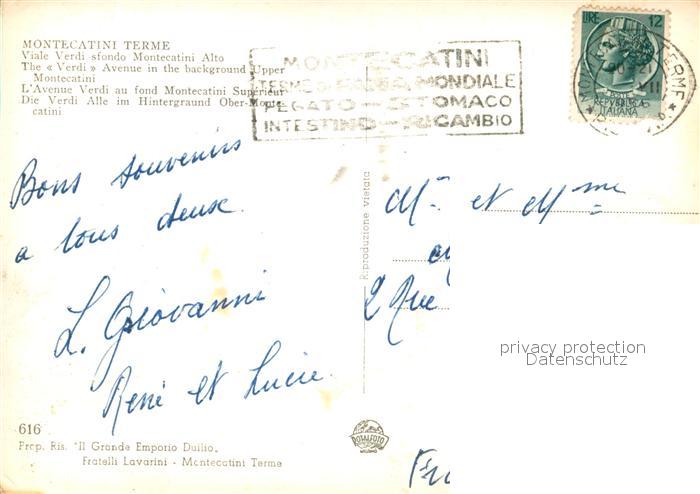 MONTECATINI TERME
Viale Verdi sfondo Montecatini Alto
The « Verdi » Avenue in the background Upper
Montecatini
L'Avenue Verdi au fond Montecatini Superieur
Die Verdi Alle im Hintergraund Ober-Monte-
catini
MONTECATINI
TERME DI FAMA MONDIALE
FEGATO - STOMACO
INTESTINO - RICAMBIO
LIRE 12
POSTE
REPVBBLICA
ITALIANA
TERME
Bons souvenirs
a tous deux.
L. Giovanni
René et Lucie.
Riproduzione vietata
Mr et Mme
2 Rue
privacy protection
Datenschutz
616
Prop. Ris. "Il Grande Emporio Duilio„
Fratelli Lavarini - Montecatini Terme
ROTALFOTO
MILANO